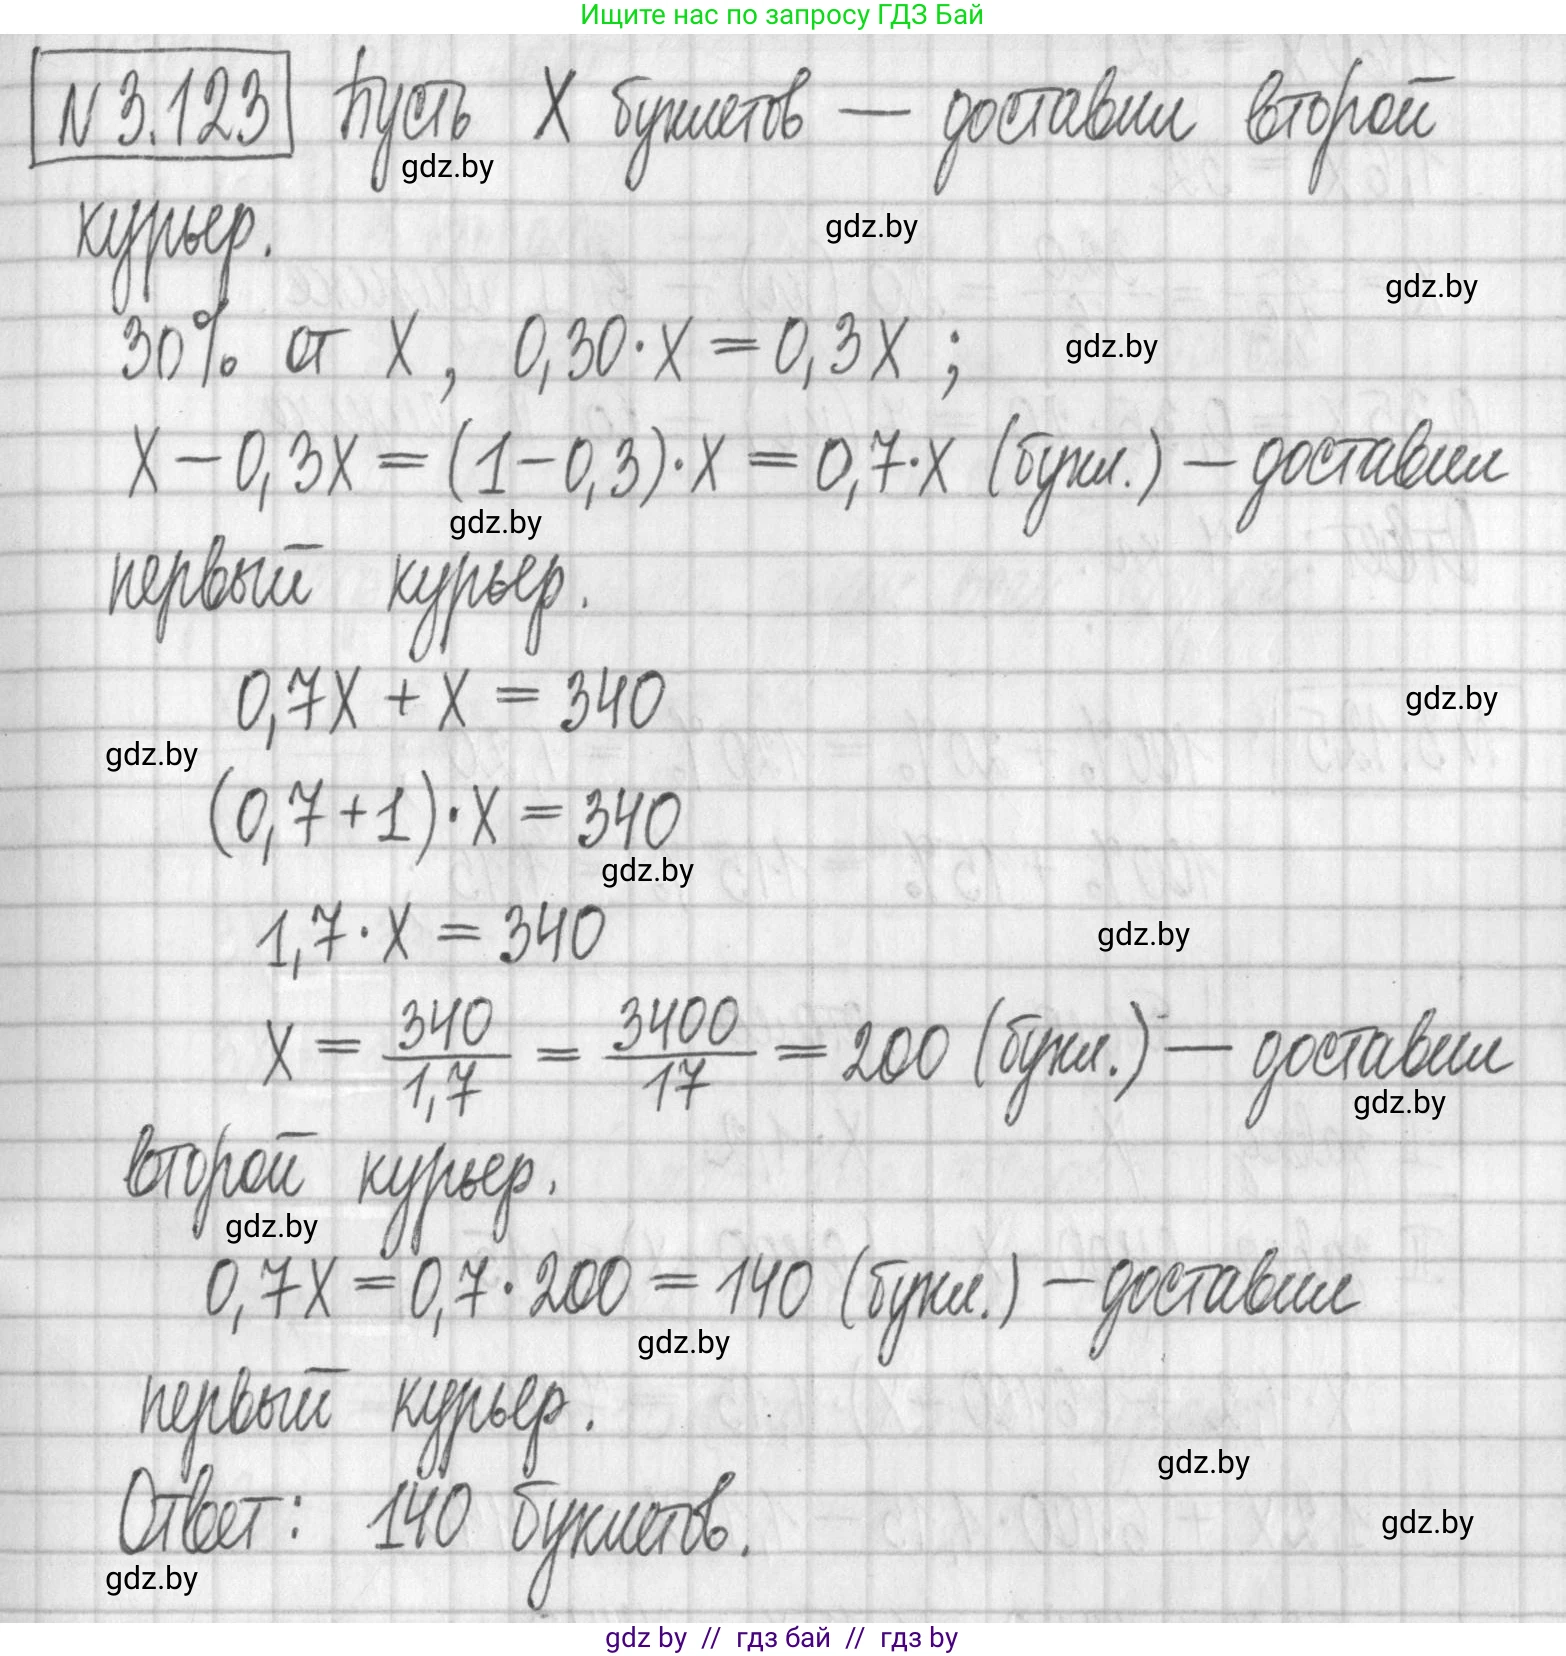 Ищите нас по запросу ГДЗ Бай
N 3.123 Пусть X буклетов — доставил второй
gdz.by
курьер.
gdz.by
gdz.by
30% от X, 0,30·X = 0,3X ;
gdz.by
X − 0,3X = (1−0,3)·X = 0,7·X (букл.) — доставил
gdz.by
первый курьер.
0,7X + X = 340
gdz.by
gdz.by
(0,7+1)·X = 340
gdz.by
1,7·X = 340
gdz.by
X = 340/1,7 = 3400/17 = 200 (букл.) — доставил
gdz.by
второй курьер.
gdz.by
0,7X = 0,7·200 = 140 (букл.) — доставил
gdz.by
первый курьер.
gdz.by
Ответ: 140 буклетов.
gdz.by
gdz.by
gdz by // гдз бай // гдз by